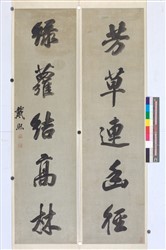 芳草連幽徑
綠蘿結高林
戴熙